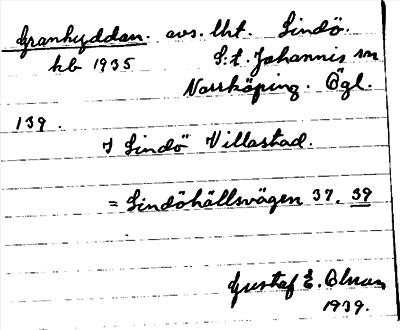 Granhyddan. avs. lht. Lindö.
kb 1935 S:t. Johannis sn
Norrköping. Ögl.
139.
I Lindö Villastad.
= Lindöhällsvägen 37. 39
Gustaf E. Olsson
1939.